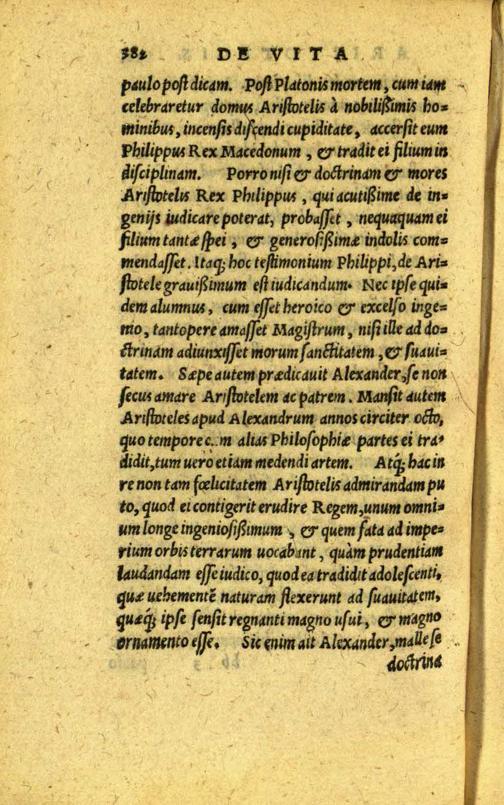 382 DE VITA
paulo post dicam. Post Platonis mortem, cum iam
celebraretur domus Aristotelis à nobilißimis ho=
minibus, incensis discendi cupiditate, accersit eum
Philippus Rex Macedonum, & tradit ei filium in
disciplinam. Porro nisi & doctrinam & mores
Aristotelis Rex Philippus, qui acutißime de in=
genijs iudicare poterat, probasset, nequaquam ei
filium tantæ spei, & generosißimæ indolis com=
mendasset. Itaq; hoc testimonium Philippi, de Ari=
stotele grauißimum est iudicandum. Nec ipse qui=
dem alumnus, cum esset heroico & excelso inge=
nio, tantopere amasset Magistrum, nisi ille ad do=
ctrinam adiunxisset morum sanctitatem, & suaui=
tatem. Sæpe autem prædicauit Alexander, se non
secus amare Aristotelem ac patrem. Mansit autem
Aristoteles apud Alexandrum annos circiter octo,
quo tempore c..m alias Philosophiæ partes ei tra=
didit, tum uerò etiam medendi artem. Atq; hac in
re non tam fœlicitatem Aristotelis admirandam pu
to, quod ei contigerit erudire Regem, unum omni=
um longe ingeniosißimum, & quem fata ad impe=
rium orbis terrarum uocabant, quàm prudentiam
laudandam esse iudico, quod ea tradidit adolescenti,
quæ uehementẽ naturam flexerunt ad suauitatem,
quæq; ipse sensit regnanti magno usui, & magno
ornamento esse. Sic enim ait Alexander, malle se
doctrina